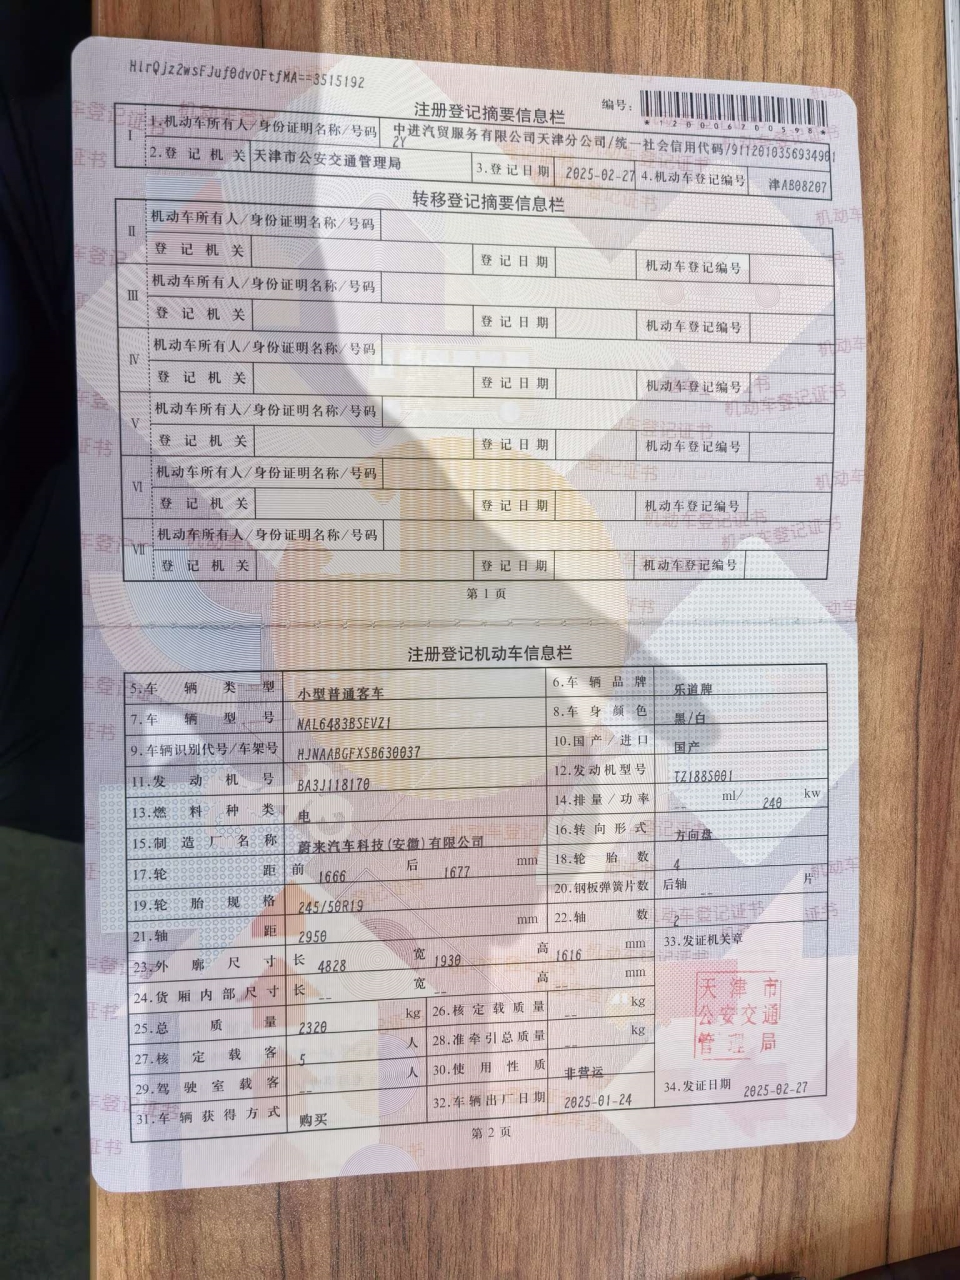 HlrQjz2wsFJuf0dvOFtfMA==3515192
编号:
*120006270 0598*
注册登记摘要信息栏
I 1.机动车所有人/身份证明名称/号码 中进汽贸服务有限公司天津分公司/统一社会信用代码/9112010356934901
2Y
2.登记机关 天津市公安交通管理局 3.登记日期 2025-02-27 4.机动车登记编号 津AB08207
转移登记摘要信息栏
II 机动车所有人/身份证明名称/号码
登记机关 登记日期 机动车登记编号
III 机动车所有人/身份证明名称/号码
登记机关 登记日期 机动车登记编号
IV 机动车所有人/身份证明名称/号码
登记机关 登记日期 机动车登记编号
V 机动车所有人/身份证明名称/号码
登记机关 登记日期 机动车登记编号
VI 机动车所有人/身份证明名称/号码
登记机关 登记日期 机动车登记编号
VII 机动车所有人/身份证明名称/号码
登记机关 登记日期 机动车登记编号
第1页
注册登记机动车信息栏
5.车辆类型 小型普通客车 6.车辆品牌 乐道牌
7.车辆型号 NAL6483BSEVZ1 8.车身颜色 黑/白
9.车辆识别代号/车架号 HJNAABGFXSB630037 10.国产/进口 国产
11.发动机号 BA3J118170 12.发动机型号 TZ188S001
13.燃料种类 电 14.排量/功率 -- ml/ 240 kw
15.制造厂名称 蔚来汽车科技(安徽)有限公司 16.转向形式 方向盘
17.轮距 前 1666 后 1677 mm 18.轮胎数 4
19.轮胎规格 245/50R19 20.钢板弹簧片数 后轴 -- 片
21.轴距 2950 mm 22.轴数 2
23.外廓尺寸 长 4828 宽 1930 高 1616 mm 33.发证机关章
24.货厢内部尺寸 长 -- 宽 -- 高 -- mm
25.总质量 2320 kg 26.核定载质量 -- kg
27.核定载客 5 人 28.准牵引总质量 -- kg
29.驾驶室载客 -- 人 30.使用性质 非营运
31.车辆获得方式 购买 32.车辆出厂日期 2025-01-24 34.发证日期 2025-02-27
天津市
公安交通
管理局
第2页